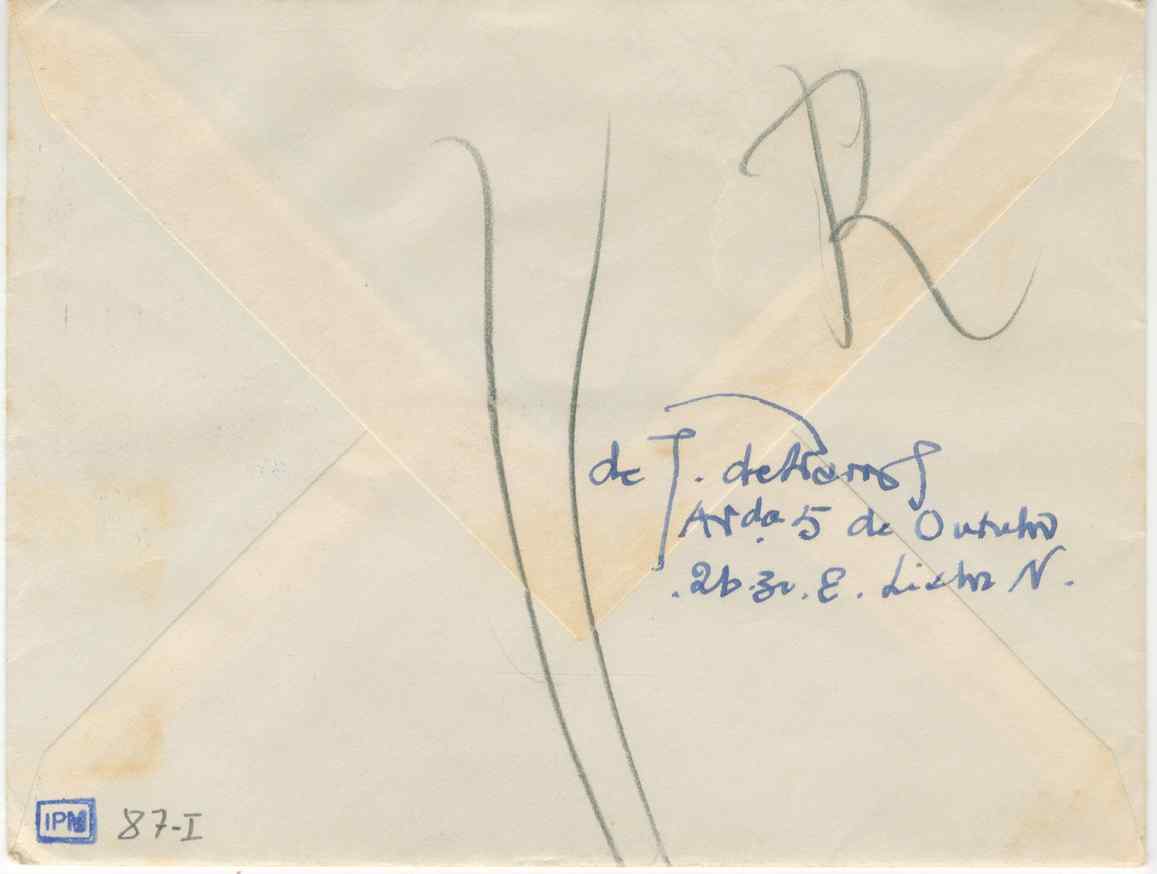 R
de J. de Barros
Avda. 5 de Outubro
26-3º. E. Lisboa N.
IPM 87-I